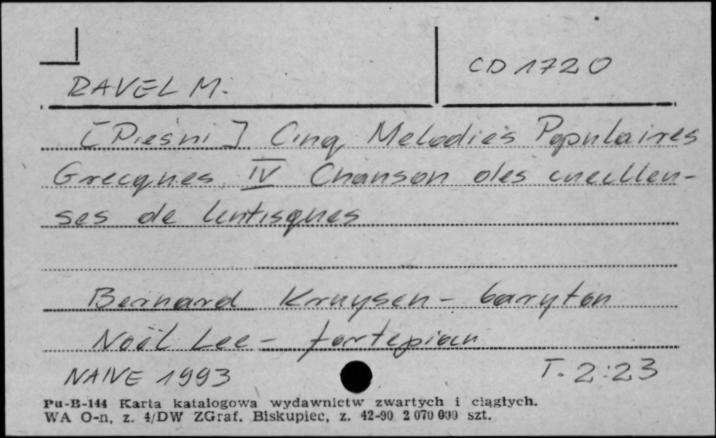 RAVEL M.
CD 1720
[Pieśni] Cinq Melodies Populaires
Grecques, IV Chanson des cueillen-
ses de lentisques
Bernard Kruysen - baryton
Noël Lee - fortepian
NAIVE 1993
T. 2:23
Pu-B-144 Karta katalogowa wydawnictw zwartych i ciągłych.
WA O-n, z. 4/DW ZGraf. Biskupiec, z. 42-90 2 070 000 szt.